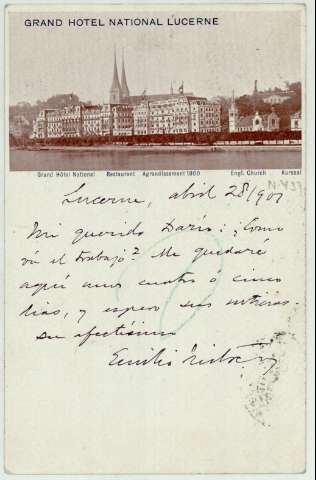 GRAND HOTEL NATIONAL LUCERNE
Grand Hôtel National Restaurant Agrandissement 1900 Engl. Church Kursaal
Lucerne, abril 28/901
Mi querido Darío: ¿Como
va el trabajo? Me quedaré
aquí unos cuatro o cinco
días, y espero sus noticias.
su afectísimo
Emilio